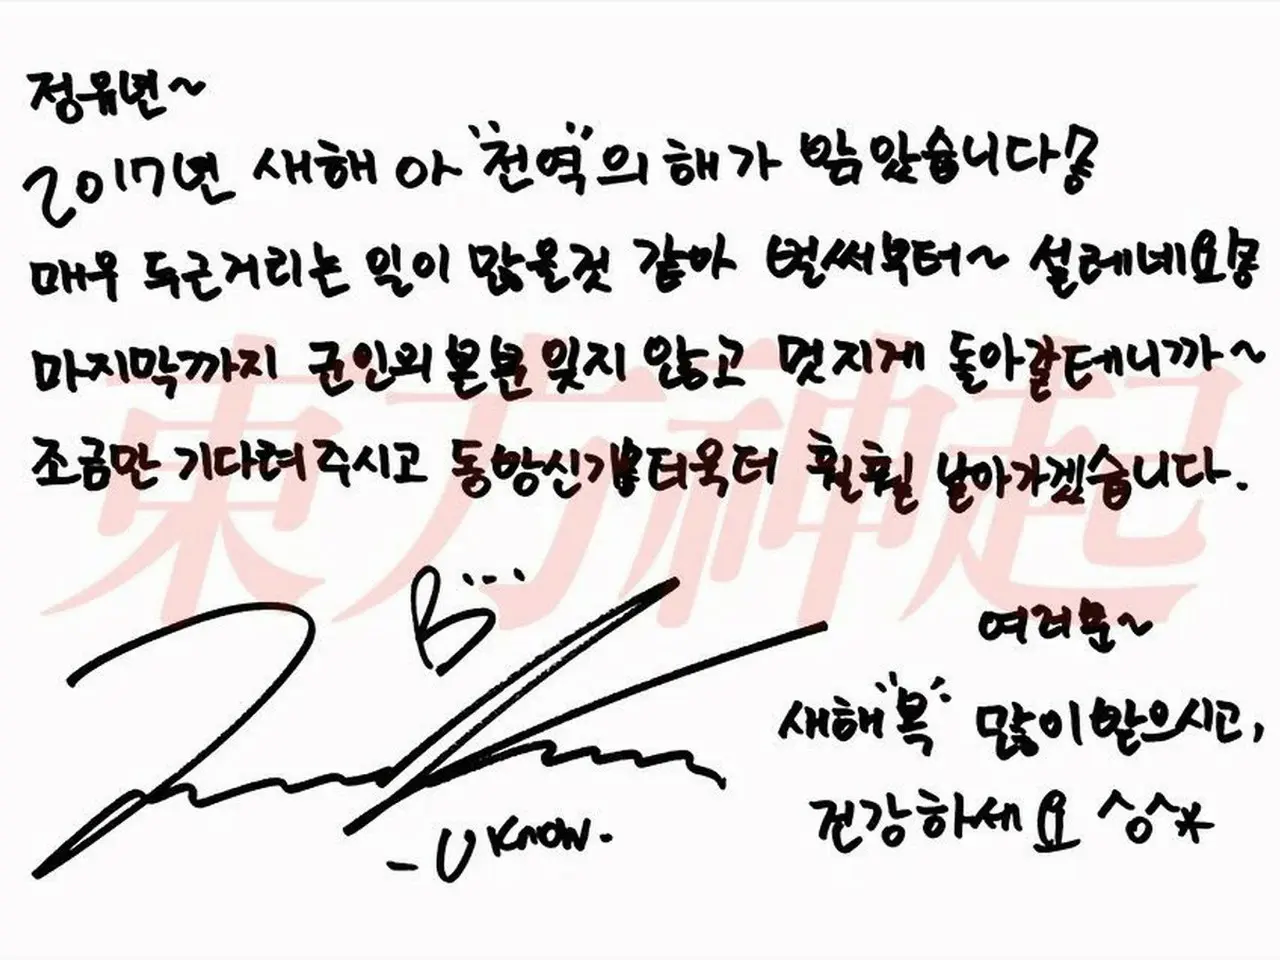 정유년~
2017년 새해 아 "전역"의 해가 밝았습니다
매우 두근거리는 일이 많을것 같아 벌써부터~ 설레네요
마지막까지 군인의 본분 잊지 않고 멋지게 돌아갈테니까~
조금만 기다려주시고 동방신기 터욱터 훨훨 날아가겠습니다.
東方神起
B...
여러분~
새해"복" 많이 받으시고,
건강하세요 ^o^*
-U KNOW.